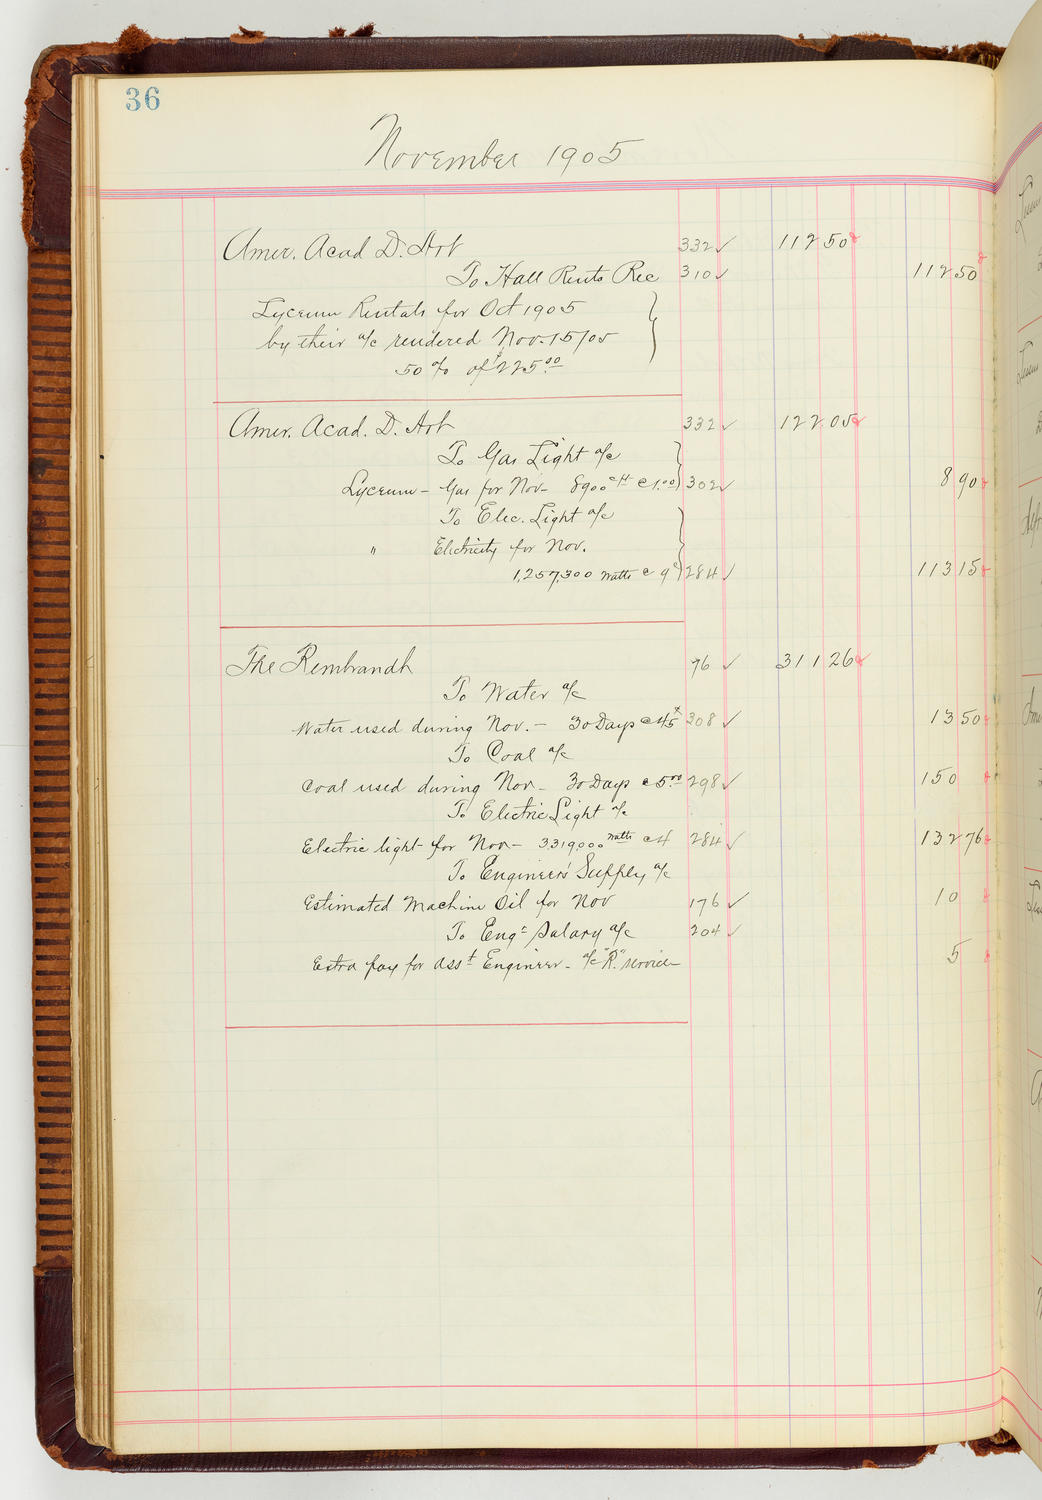 36
November 1905
Amer. Acad D. Art 332 ✓ 112 50
To Hall Rents Rec 310 ✓ 112 50
Lyceum Rentals for Oct 1905
by their a/c rendered Nov. 15/05
50% of $225.00
Amer. Acad. D. Art 332 ✓ 122 05
To Gas Light a/c
Lyceum - Gas for Nov - 8900 cft @ 1.00 302 ✓ 8 90
To Elec. Light a/c
" Electricity for Nov.
1,257,300 watts @ 9c 284 ✓ 113 15
The Rembrandt 76 ✓ 311 26
To Water a/c
Water used during Nov. - 30 Days @ 45c 308 ✓ 13 50
To Coal a/c
Coal used during Nov - 30 Days @ 5.00 298 ✓ 150
To Electric Light a/c
Electric light for Nov - 3,319,000 watts @ 4 284 ✓ 132 76
To Engineers' Supply a/c
Estimated Machine Oil for Nov 176 ✓ 10
To Engr Salary a/c 204 ✓
Extra pay for Asst Engineer - a/c "R" service 5